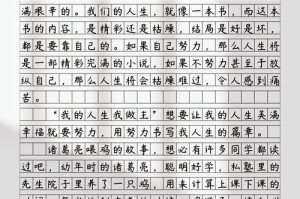 满艰辛的。我们的人生，就像一本书，而这本
书的内容，是精彩还是枯燥，结局是好是坏，
都是要靠自己的。如果自己努力，那么人生将
是一部精彩完满的小说，如果不努力甚至于放
纵自己，那么人生将会枯燥难过，令人感到痛
苦。
“我的人生我做主”想要让我的人生美满
幸福就要努力，用努力书写我人生的篇章。
诸葛亮喂鸡的故事，想必有许多同学都读
过吧，幼年时的诸葛亮，聪明好学，私塾里的
先生院子里养了一只鸡，用来计算上课下课的